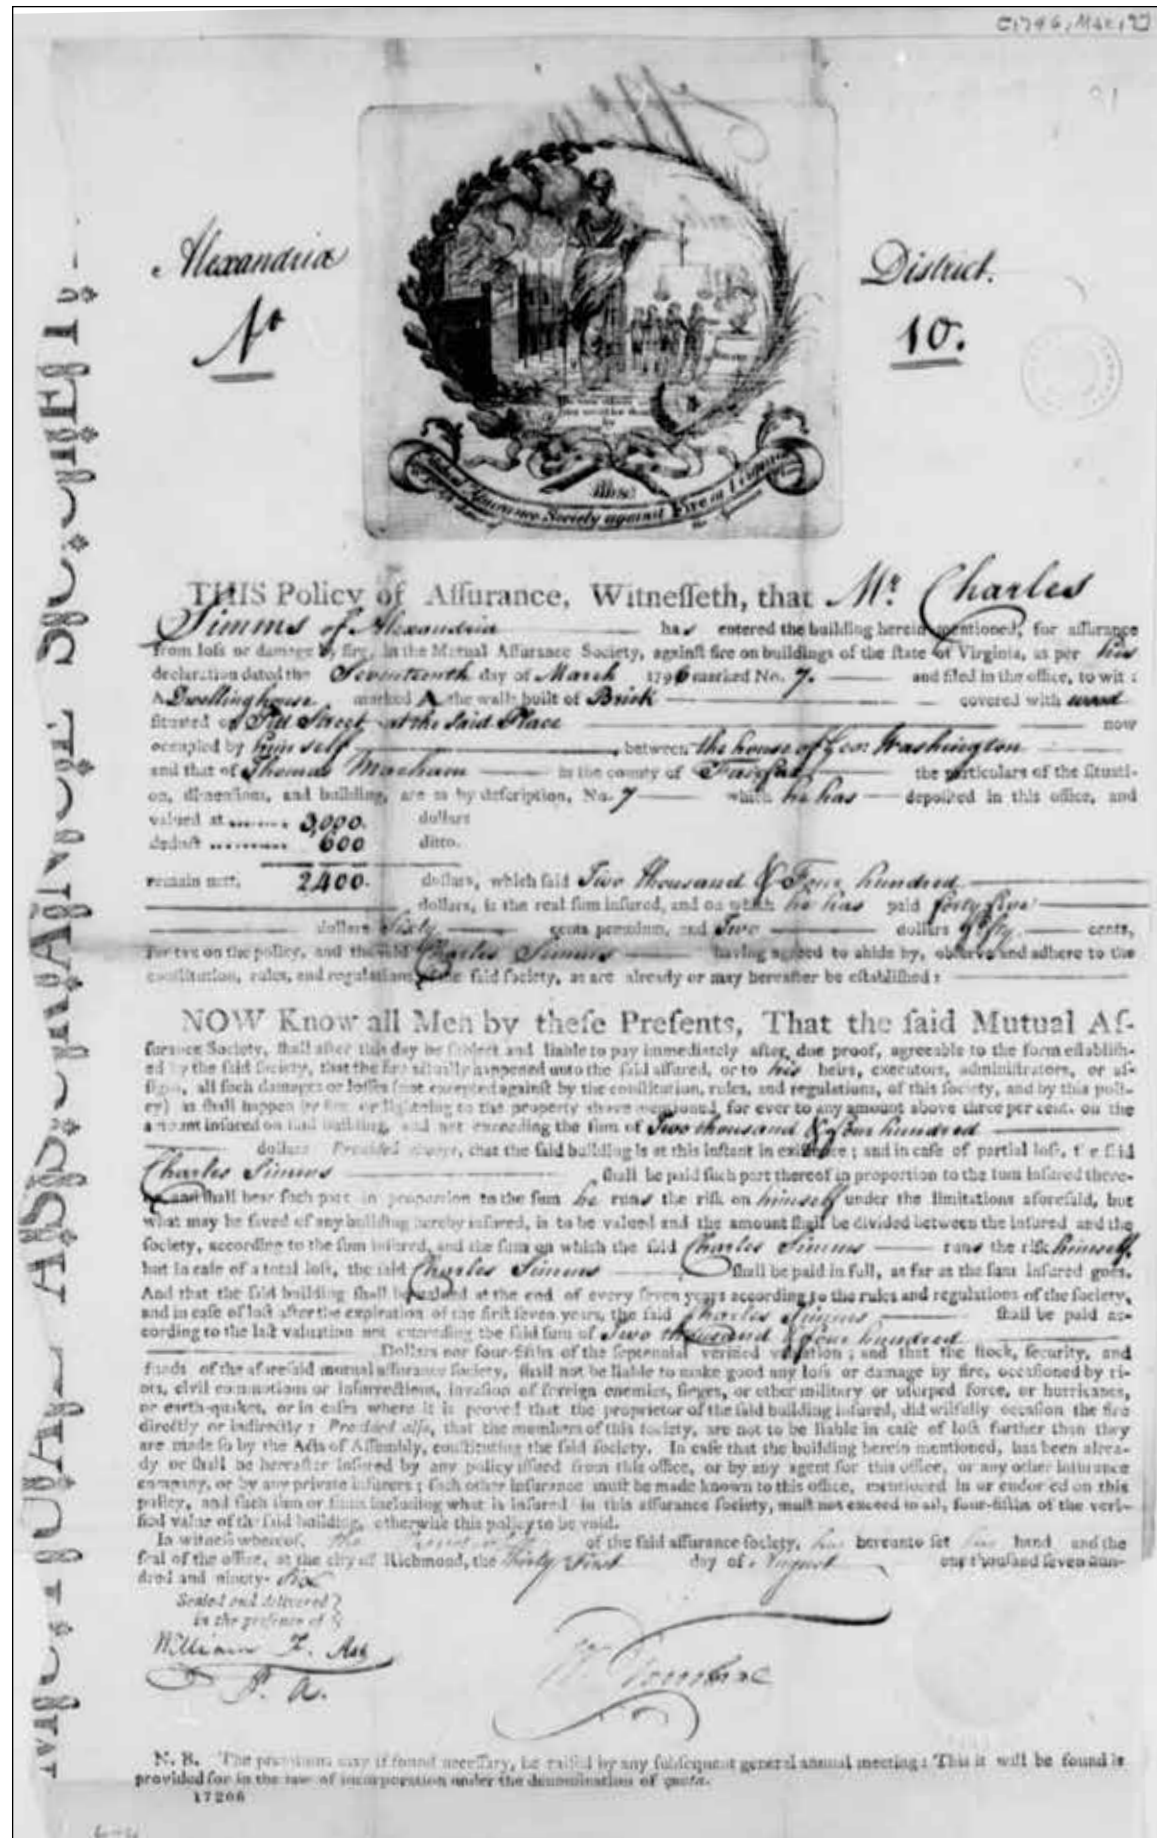 Alexandria
District.
No
10.
Mutual Assurance Society against Fire on
THIS Policy of Aſſurance, Witneſſeth, that Mr. Charles
Simms of Alexandria has entered the building herein mentioned, for aſſurance
from loſs or damage by fire, in the Mutual Aſſurance Society, againſt fire on buildings of the ſtate of Virginia, as per his
declaration dated the Seventeenth day of March 1796 marked No. 7. and filed in the office, to wit:
A Dwelling house marked A the walls built of Brick covered with wood
ſituated on Street at the said Place now
occupied by him self between the house of Geo: Washington
and that of Thomas in the county of Fairfax the particulars of the ſituati-
on, dimenſions, and building, are as by deſcription, No. 7 which he has depoſited in this office, and
valued at ........ 3,000. dollars
deduct .......... 600 ditto.
remain nett, 2400. dollars, which ſaid Two thousand & Four hundred
dollars, is the real ſum inſured, and on which he has paid forty five
dollars Sixty cents premium, and Two dollars fifty cents,
for tax on the policy, and the ſaid Charles Simms having agreed to abide by, obſerve and adhere to the
conſtitution, rules, and regulations of the ſaid ſociety, as are already or may hereafter be eſtabliſhed:
NOW Know all Men by theſe Preſents, That the ſaid Mutual Aſ-
ſurance Society, ſhall after this day be ſubject and liable to pay immediately after, due proof, agreeable to the form eſtabliſh-
ed by the ſaid ſociety, that the fire actually happened unto the ſaid aſſured, or to his heirs, executors, adminiſtrators, or aſ-
ſigns, all ſuch damages or loſſes (not excepted againſt by the conſtitution, rules, and regulations, of this ſociety, and by this poli-
cy) as ſhall happen by fire or lightning to the property above mentioned, for ever to any amount above three per cent. on the
amount inſured on ſaid building, and not exceeding the ſum of Two thousand & four hundred
dollars Provided always, that the ſaid building is at this inſtant in exiſtence; and in caſe of partial loſs, the ſaid
Charles Simms ſhall be paid ſuch part thereof in proportion to the ſum inſured there-
on, and ſhall bear ſuch part in proportion to the ſum he runs the riſk on himself under the limitations aforeſaid, but
what may be ſaved of any building hereby inſured, is to be valued and the amount ſhall be divided between the inſured and the
ſociety, according to the ſum inſured, and the ſum on which the ſaid Charles Simms runs the riſk himself,
but in caſe of a total loſs, the ſaid Charles Simms ſhall be paid in full, as far as the ſum inſured goes.
And that the ſaid building ſhall be valued at the end of every ſeven years according to the rules and regulations of the ſociety,
and in caſe of loſs after the expiration of the firſt ſeven years, the ſaid Charles Simms ſhall be paid ac-
cording to the laſt valuation not exceeding the ſaid ſum of Two thousand & four hundred
Dollars nor four-fifths of the ſeptennial verified valuation; and that the ſtock, ſecurity, and
funds of the aforeſaid mutual aſſurance ſociety, ſhall not be liable to make good any loſs or damage by fire, occaſioned by ri-
ots, civil commotions or inſurrections, invaſion of foreign enemies, ſieges, or other military or uſurped force, or hurricanes,
or earth-quakes, or in caſes where it is proved that the proprietor of the ſaid building inſured, did wilfully occaſion the fire
directly or indirectly; Provided alſo, that the members of this ſociety, are not to be liable in caſe of loſs further than they
are made ſo by the Acts of Aſſembly, conſtituting the ſaid ſociety. In caſe that the building herein mentioned, has been alrea-
dy or ſhall be hereafter inſured by any policy iſſued from this office, or by any agent for this office, or any other inſurance
company, or by any private inſurers; ſuch other inſurance muſt be made known to this office, mentioned in or endorſed on this
policy, and ſuch ſum or ſums including what is inſured in this aſſurance ſociety, muſt not exceed in all, four-fifths of the veri-
fied value of the ſaid building, otherwiſe this policy to be void.
In witneſs whereof, the of the ſaid aſſurance ſociety, has hereunto ſet his hand and the
ſeal of the office, at the city of Richmond, the Thirty First day of August one thouſand ſeven hun-
dred and ninety-six
Sealed and delivered
in the preſence of
William F. Ast
P. A.
N. B. The premiums may if found neceſſary, be raiſed by any ſubſequent general annual meeting: This it will be found is
provided for in the law of incorporation under the denomination of quota.
17206
MUTUAL ASSURANCE SOCIETY.